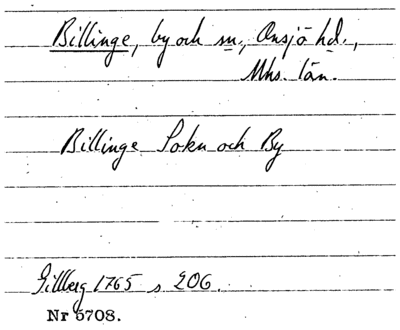 Billinge, by och sn., Onsjö hd.,
Mhs. län.
Billinge Sokn och By
Gillberg 1765 s. 206.
Nr 5708.